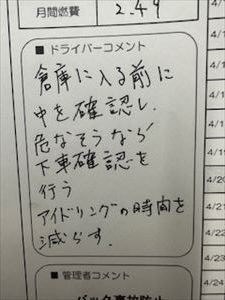 月間燃費 2.49
■ドライバーコメント
倉庫に入る前に
中を確認し、
危なそうなら
下車確認を
行う
アイドリングの時間を
減らす.
■管理者コメント
バック事故防止
4/1
4/1
4/1
4/19
4/20
4/21
4/22
4/23
4/24